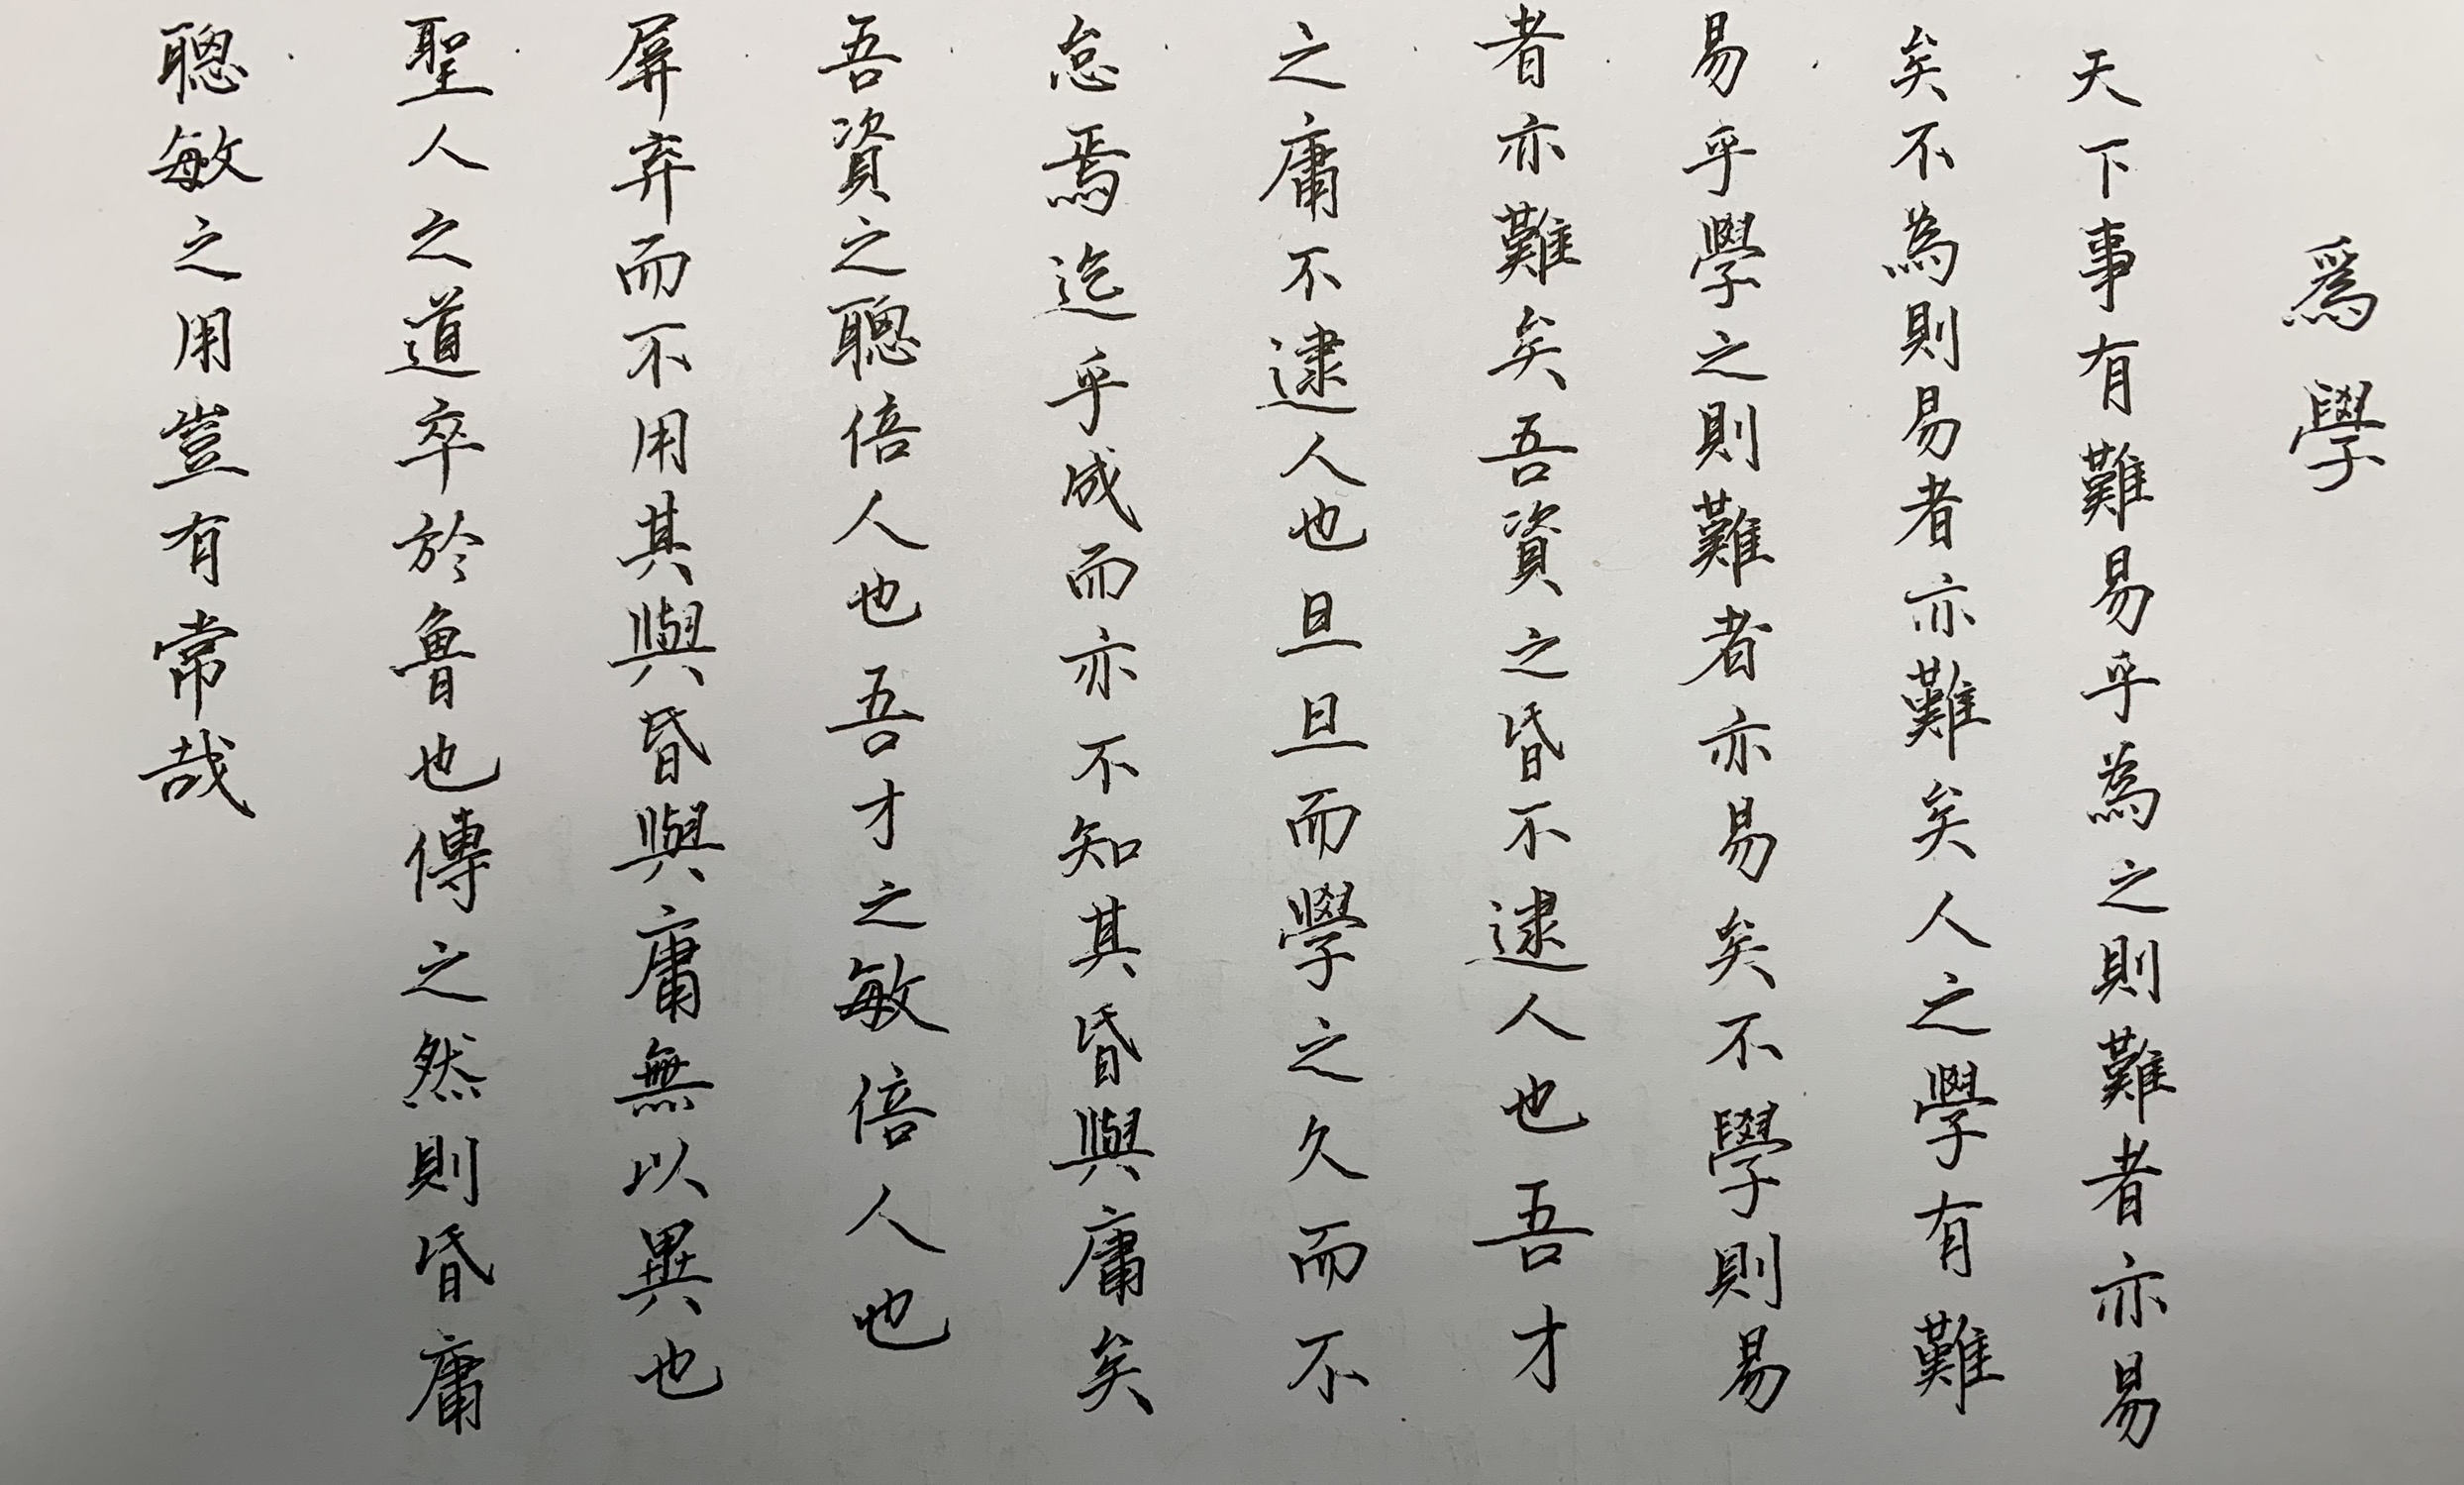 爲學
天下事有難易乎為之則難者亦易
矣不為則易者亦難矣人之學有難
易乎學之則難者亦易矣不學則易
者亦難矣吾資之昏不逮人也吾才
之庸不逮人也旦旦而學之久而不
怠焉迄乎成而亦不知其昏與庸矣
吾資之聰倍人也吾才之敏倍人也
屏弃而不用其與昏與庸無以異也
聖人之道卒於魯也傳之然則昏庸
聰敏之用豈有常哉